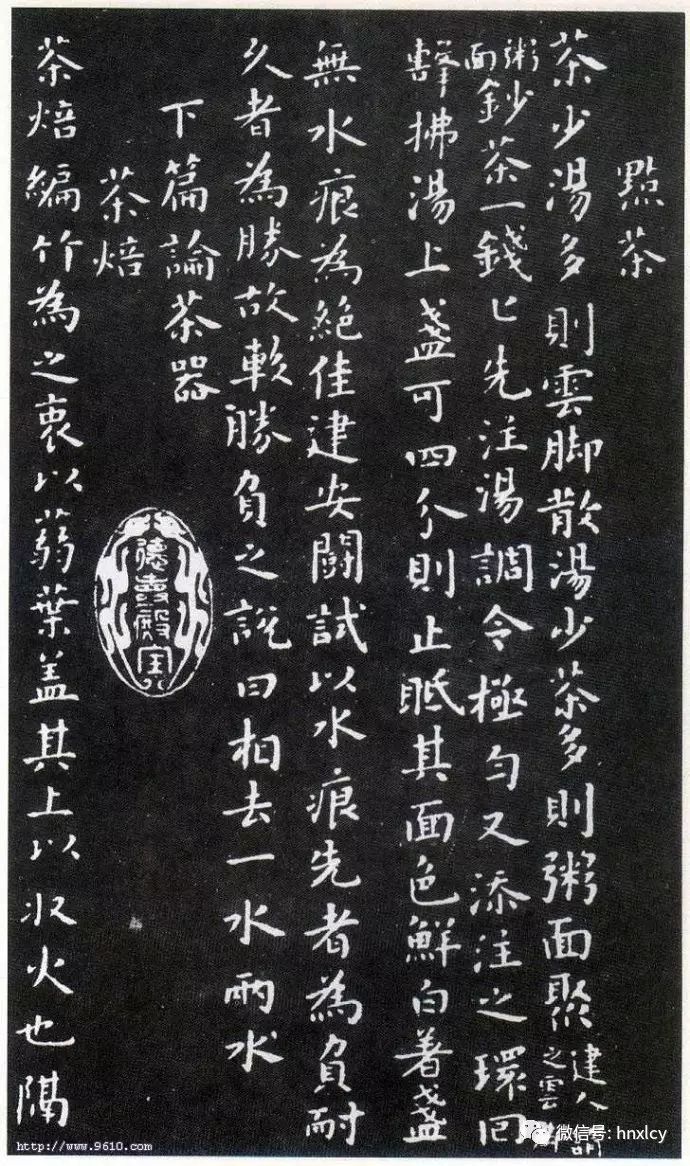 點茶
茶少湯多則雲脚散湯少茶多則粥面聚建人謂之雲脚
粥面鈔茶一錢匕先注湯調令極匀又添注之環回
擊拂湯上盞可四分則止眡其面色鮮白著盞
無水痕為絶佳建安鬭試以水痕先者為負耐
久者為勝故較勝負之說曰相去一水兩水
下篇論茶器
茶焙
德壽殿寶
茶焙編竹為之裹以蒻葉盖其上以収火也隔
http://www.9610.com
微信号: hnxlcy